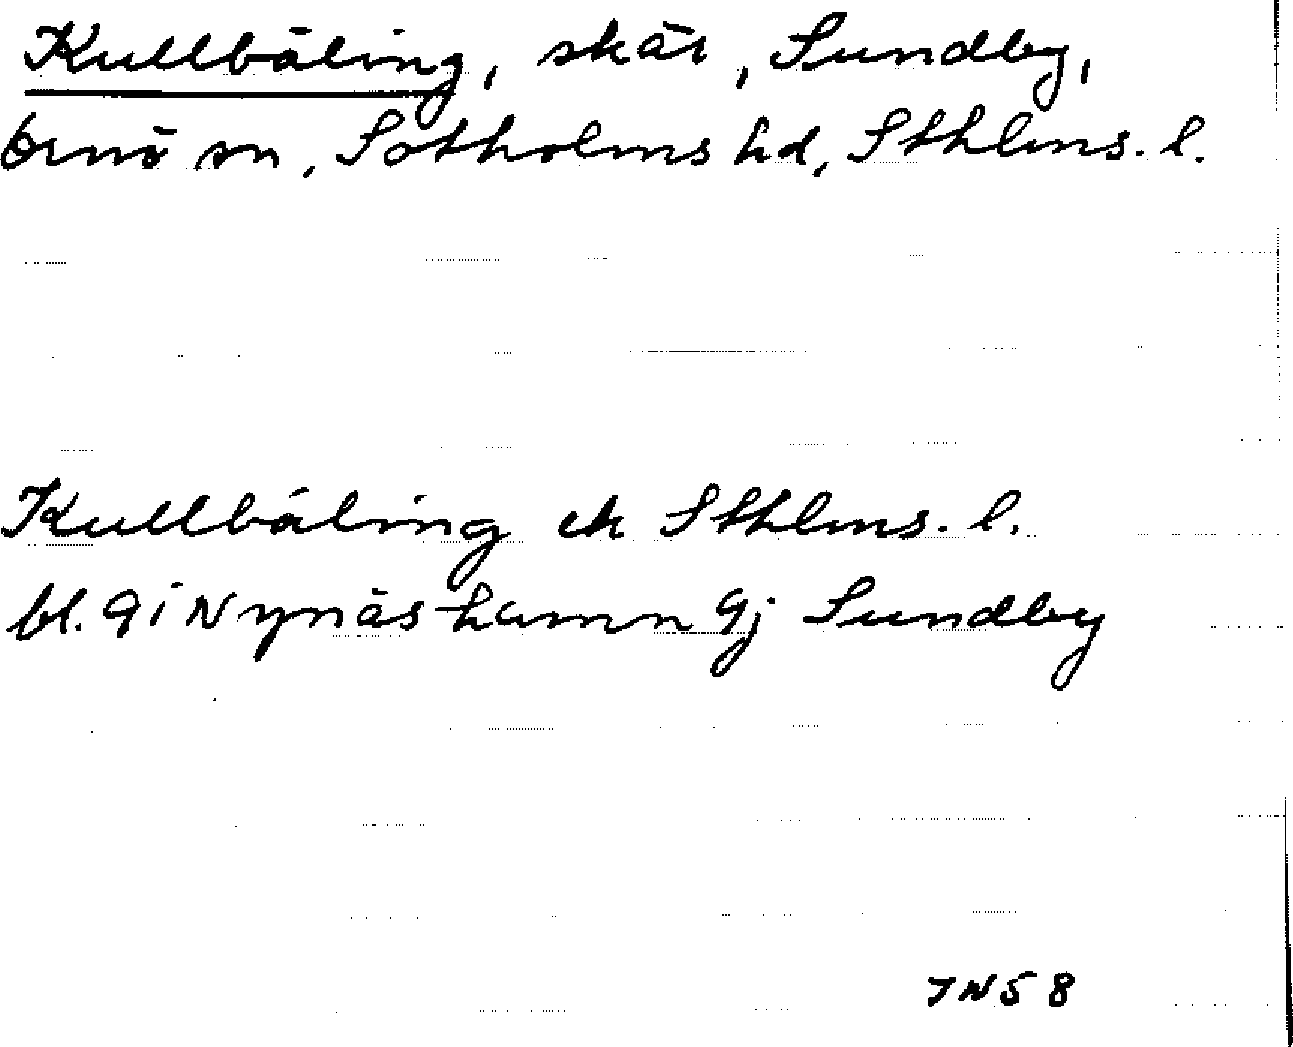 Kullbåling, skär, Sundby,
Ornö sn, Sotholms hd, Sthlms. l.
Kullbåling ek Sthlms. l.
bl. 9 i Nynäshamn 9j Sundby
JN58